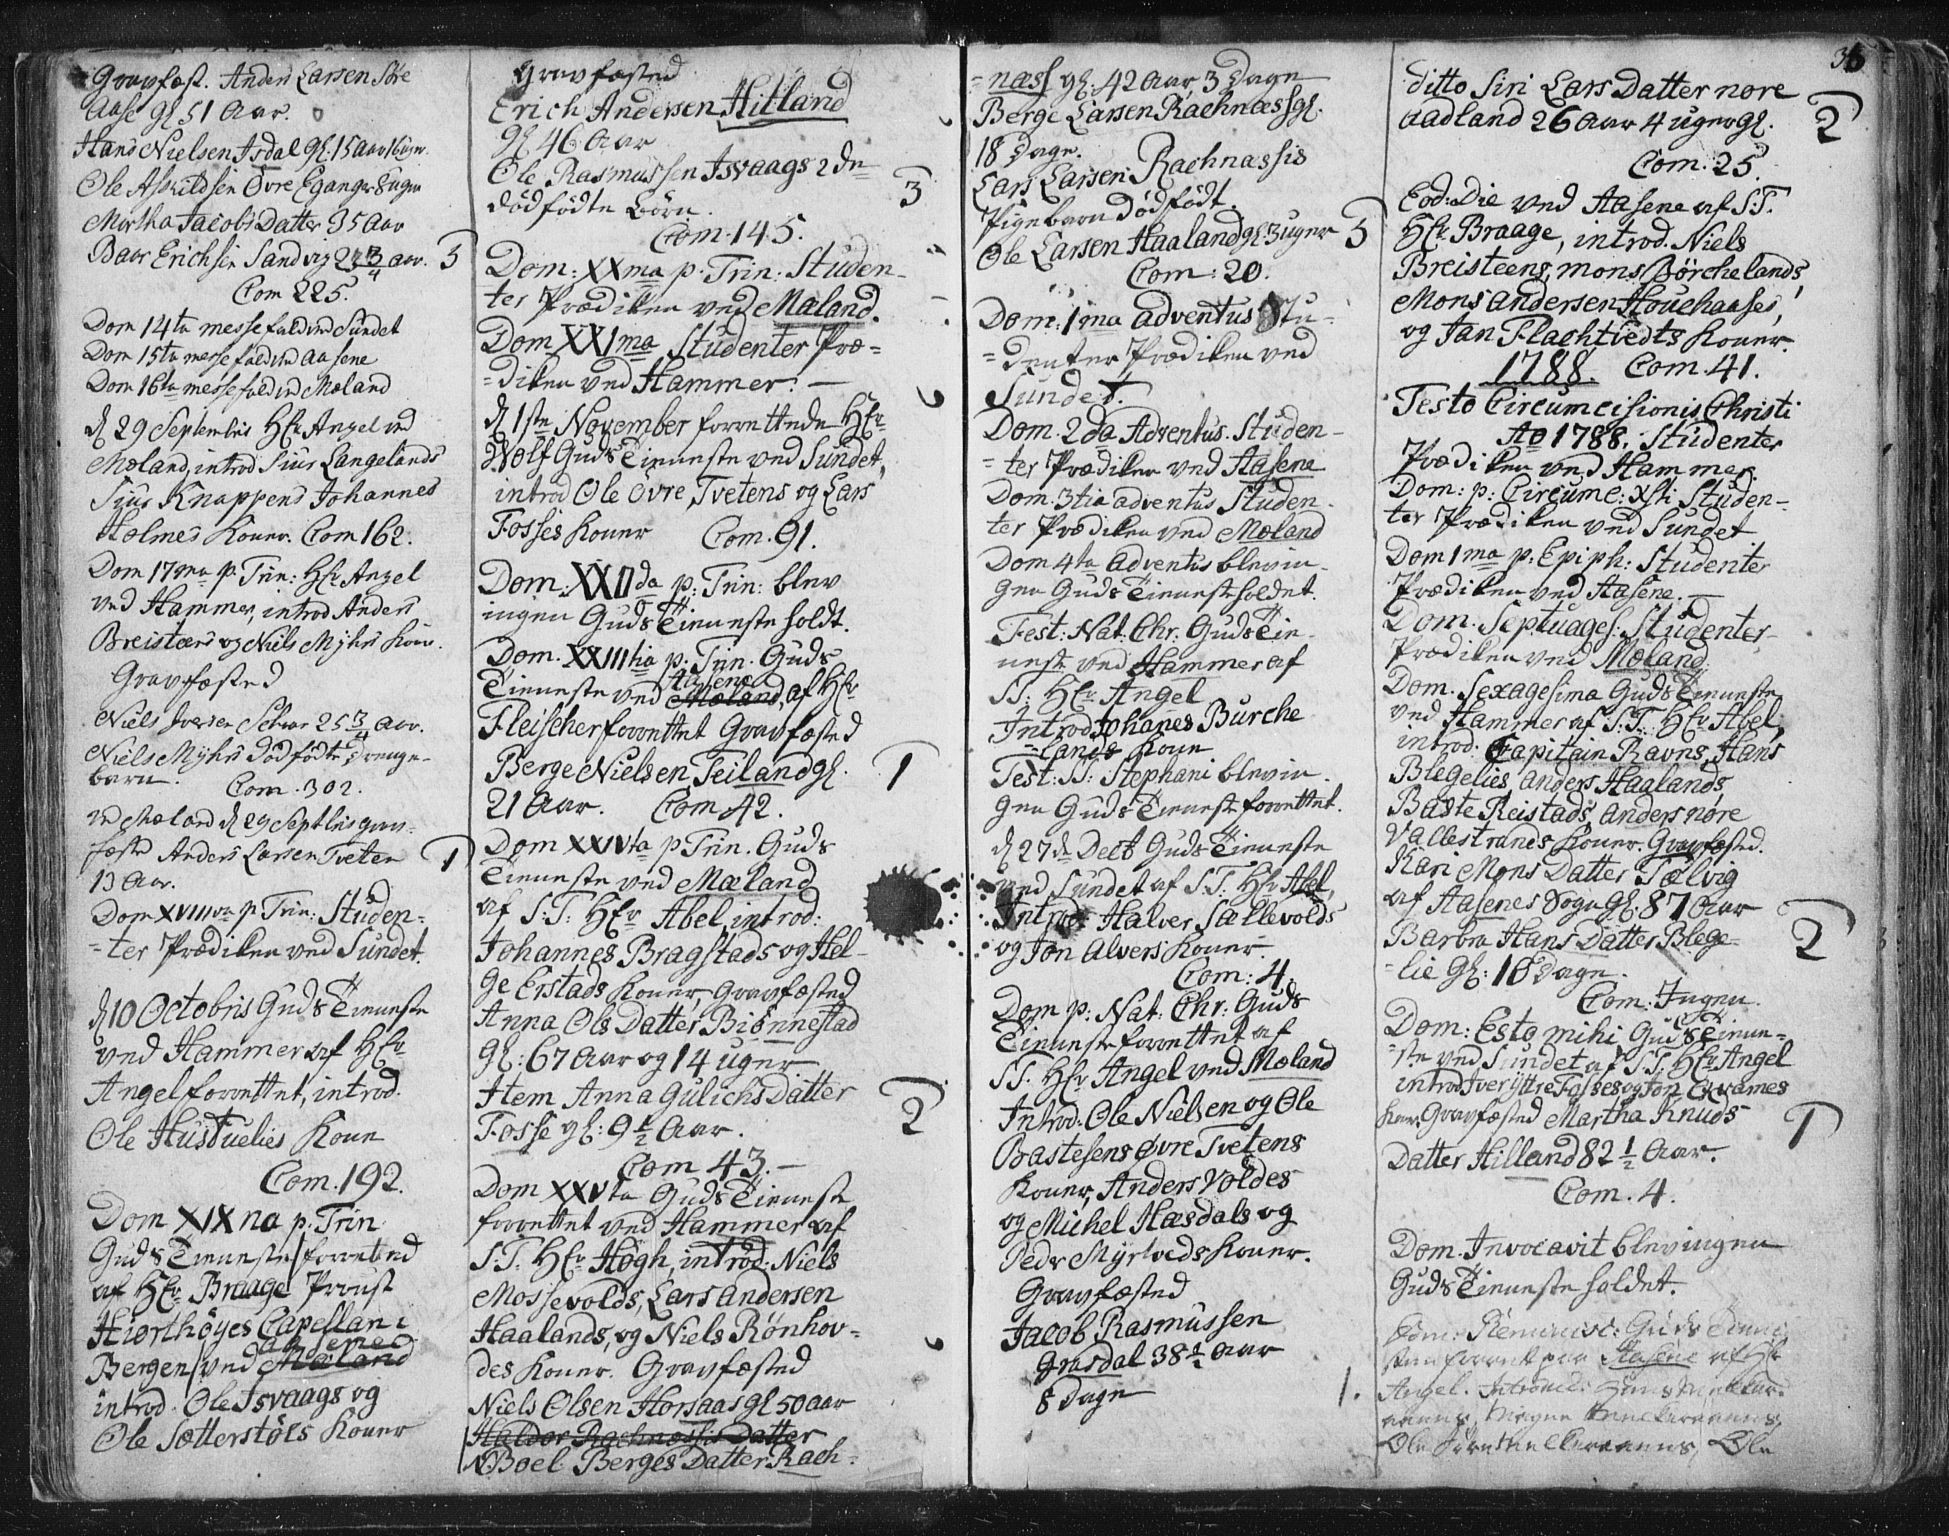 Gravfæst. Anders Larsen Søre
Aase gl 51 Aar.
Hans Nielsen Isdal gl. 15 Aar 16 uger.
Ole Askildsen Øvre Eganger 8 uger
Martha Jacobs Datter 35 Aar
Baar Erichsen Sandvig 22 3/4 aar. 5
Com 225.
Dom 14ta messefald ved Sundet
Dom 15ta messefald ved Aasene
Dom 16ta messefald ved Mæland
d 29 Septembris Hr Angel ved
Mæland, introd Siur Langelands
Siur Knappens Johannes
Holmes Koner. Com 162.
Dom 17ma p. Trin: Hr Angel
ved Hammer, introd Anders
Breisteens og Niels Myhrs Kon.
Gravfæsted
Niels Iversen 25 3/4 Aar.
Niels Myhrs dødfødte Drenge-
barn. Com. 302.
ved Mæland d 29 Septbris grav-
fæste Anders Larsen Tveten 1
13 Aar.
Dom XVIIIva p Trin: Studen-
-ter Prædiken ved Sundet.
d 10 Octobris Guds Tieneste
ved Hammer af Hr
Angel forrettet, introd.
Ole Hustuelies Kone
Com. 192.
Dom XIXna p. Trin
Guds Tieneste forretted
af Hr. Braage Provst
Hiorthøyes Capellan i
Aasene
Bergen/ ved Mæland
introd. Ole Isvaags og
Ole Sætterstøls Koner
Gravfæsted
Erich Andersen Hitland
gl 46 Aar
Ole Rasmussen Isvaags 2de
dødfødte Børn. 3
Com. 145.
Dom: XXma p. Trin. Studen-
ter Prædiken ved Mæland.
Dom XXIma Studenter Præ-
-diken ved Hammer. —
d 1ste November forrettede Hr
Wolf Guds Tieneste ved Sundet,
introd Ole Øvre Tvetens og Lars
Fosses Koner Com. 91.
Dom. XXIIda p: Trin: blev
ingen Guds Tieneste holdt.
Dom. XXIIItia p: Trin. Guds
Aasene
Tieneste ved Mæland, af Hr
Fleischer forrettet Gravfæsted
Berge Nielsen Teiland gl. 1
21 Aar. Com 42.
Dom XXIVta p Trin. Guds
Tieneste ved Mæland
af S: T: Hr Abel, introd:
Johannes Bragstads og Hel-
ge Erstads Koner, Gravfæsted
Anna Ols Datter Biønnestad
gl: 67 Aar og 14 uger
Item Anna Gulichs Datter
Fosse gl: 9 1/2 Aar. 2
Com 43. —
Dom XXVta Guds Tieneste
forrettet ved Hammer af
S. T. Hr Høgh, introd: Niels
Mossevolds, Lars Andersen
Haalands, og Niels Rønhov-
des Koner. Gravfæsted
Niels Olsen Horsaas gl 50 aar
Haldor Rachnæssis Datter
Boel Berges Datter Rach-
-næss gl. 42 Aar, 3 Dage
Berge Larsen Rachnæss gl.
18 Dage.
Lars Larsen Rachnæssis
Pigebarn dødfødt.
Ole Larsen Haaland gl 3 uger 5
Com: 20.
Dom: 1ma adventus Stu-
-denter Prædiken ved
Sundet.
Dom. 2da Adventus. Studen-
-ter Prædiken ved Aasene
Dom. 3tia adventus Studen-
ter Prædiken ved Mæland
Dom 4ta Adventus blev in-
gen Guds Tieneste holdet.
Fest: Nat: Chr. Guds Tie-
neste ved Hammer af
S T. Hr. Angel
Introd Johanes Burche
lands Kone
Fest: St: Stephani blev in-
gen Guds Tieneste forrettet.
d 27de Decb Guds Tieneste
ved Sundet af S. T. Hr Abel,
Introd: Halver Sællevolds
og Jon Alvers Koner.
Com: 4.
Dom p: Nat: Chr: Guds
Tieneste forrettet af
S T. Hr. Angel ved Mæland
Introd. Ole Nielsen og Ole
Bastesens Øvre Tvetens
Koner, Anders Voldes
og Michel Hæsdals og
Peder Myrlvedts Koner.
Gravfæsted
Jacob Rasmussen
Grasdal 38 1/2 Aar
8 Dage 1.
36
ditto Siri Lars Datter nore
Aadland 26 Aar 4 uger gl. 2
Com: 25.
Eod: Die ved Aasene af S: T.
Hr. Braage, introd. Niels
Breisteens, mons Børchelands,
Mons Andersen Houehaases,
og Jan Flachtvedts Koner.
1788. Com. 41.
Festo Circumcisionis Christi
Ao 1788. Studenter
Prædiken ved Hammer.
Dom: p: Circumc: Xsti Studen-
ter Prædiken ved Sundet
Dom 1ma p: Epiph: Studenter
Prædiken ved Aasene. —
Dom. Septuages: Studenter
Prædiken ved Mæland
Dom. Sexagesima Guds Tieneste
ved Hammer af S. T. Hr Abel,
introd: Capitain Ravns, Hans
Blegelies, Anders Haalands
Baste Reistads, Anders nøre
Vallestrands Koner. Gravfæsted.
Kari Mons Datter Tælvig
af Aasenes Sogn gl. 87 Aar
Barbra Hans Datter Blege- 2
-lie gl: 10 Dage.
Com: Ingen.
Dom: Esto mihi Guds Tiene-
-ste ved Sundet af S. T. Hr. Angel
introd Iver Yttre Fosses og Jon Qvames
Kon. Gravfæsted Martha Knuds 1
Datter Hilland 82 1/2 Aar.
Com. 4.
Dom. Invocavit blev ingen
Guds Tieneste holdet.
Dom: Reminisc: Guds Tiene
sten forrett paa Aasene af Hr
Angel. Introd:
Magne
Ole Ole